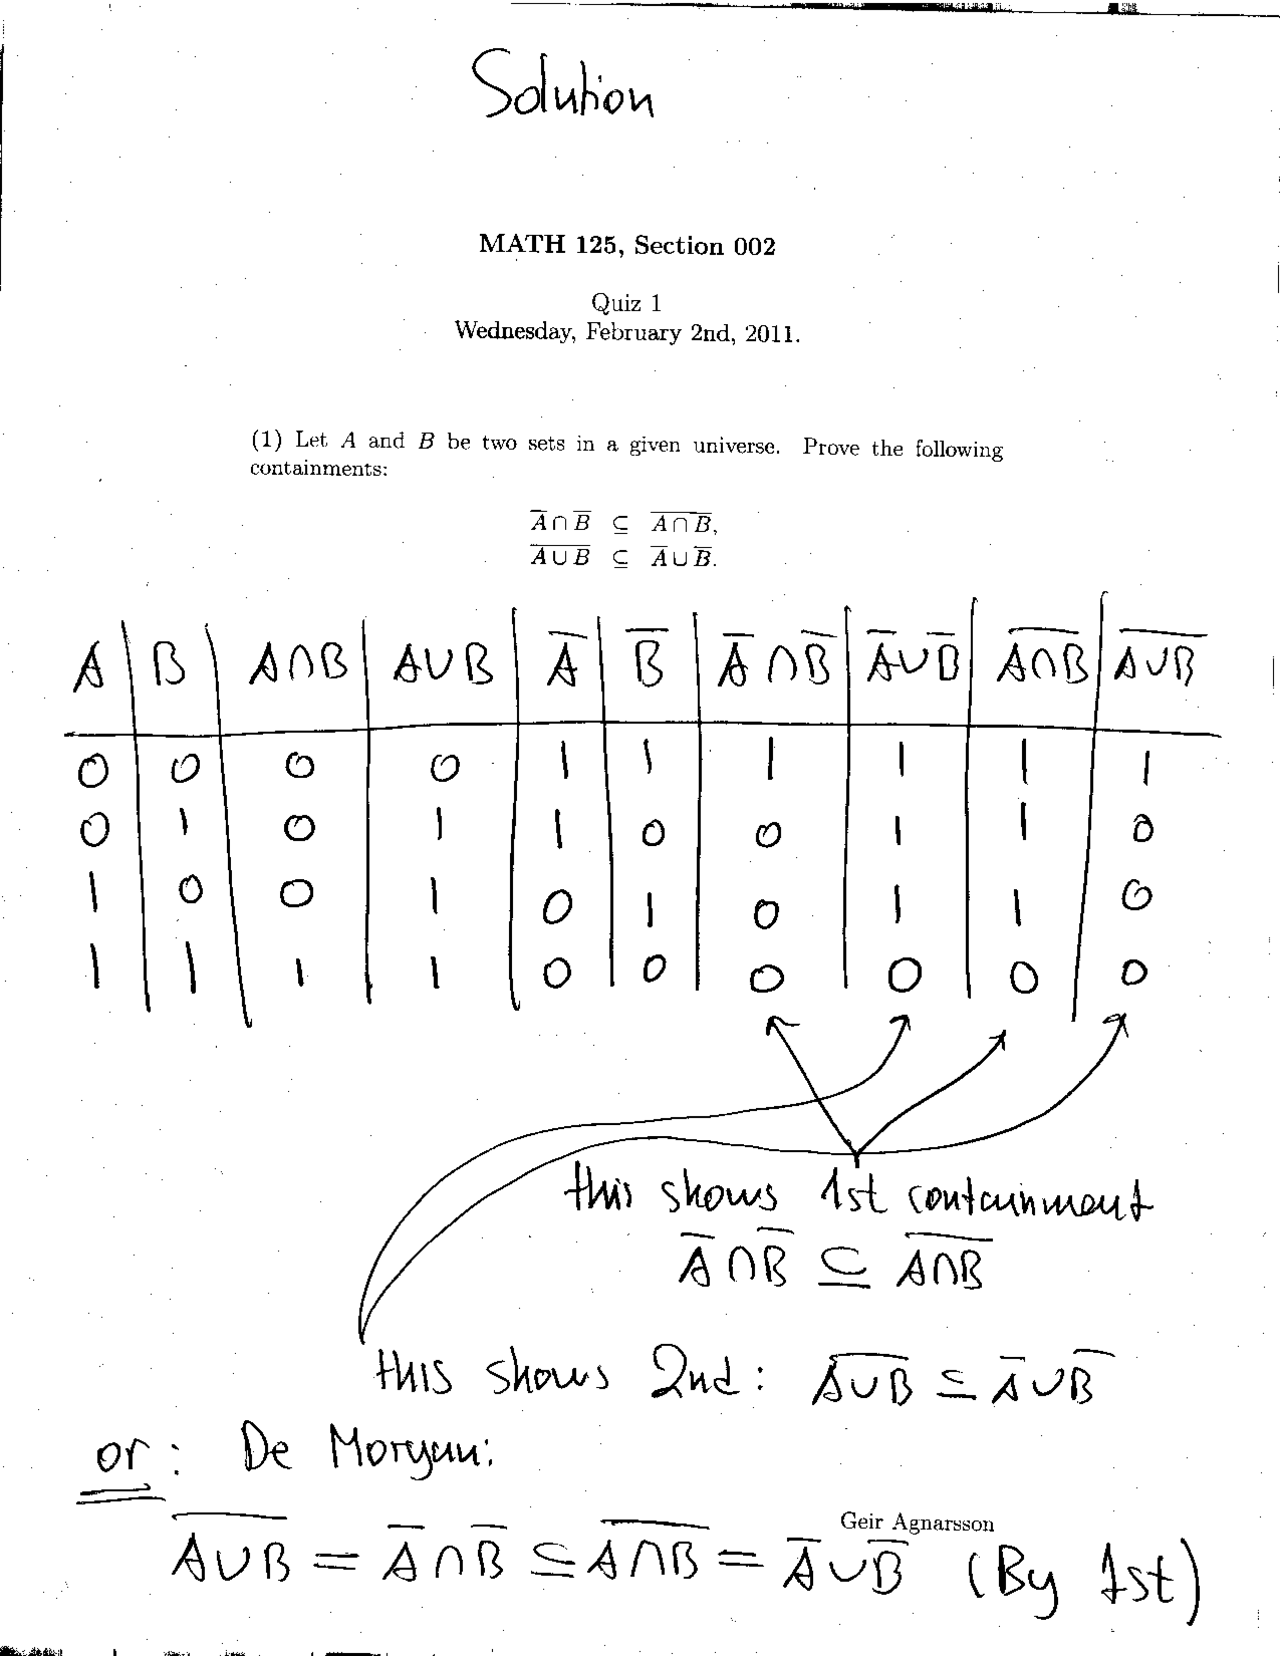 Solution
MATH 125, Section 002
Quiz 1
Wednesday, February 2nd, 2011.
(1) Let A and B be two sets in a given universe. Prove the following
containments:
A̅ ∩ B̅ ⊆ \overline{A ∩ B},
\overline{A ∪ B} ⊆ A̅ ∪ B̅.
A | B | A∩B | A∪B | A̅ | B̅ | A̅ ∩ B̅ | A̅ ∪ B̅ | \overline{A∩B} | \overline{A∪B}
0 0 0 0 1 1 1 1 1 1
0 1 0 1 1 0 0 1 1 0
1 0 0 1 0 1 0 1 1 0
1 1 1 1 0 0 0 0 0 0
this shows 1st containment
A̅ ∩ B̅ ⊆ \overline{A∩B}
this shows 2nd: \overline{A∪B} ⊆ A̅ ∪ B̅
or: De Morgan:
Geir Agnarsson
\overline{A∪B} = A̅ ∩ B̅ ⊆ \overline{A∩B} = A̅ ∪ B̅ (By 1st)